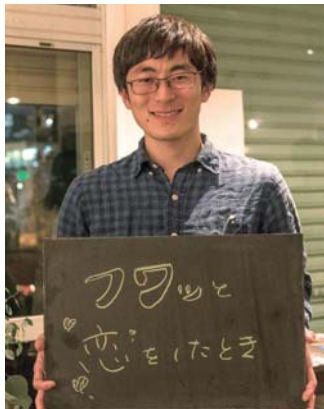 フワッと
恋をしたとき